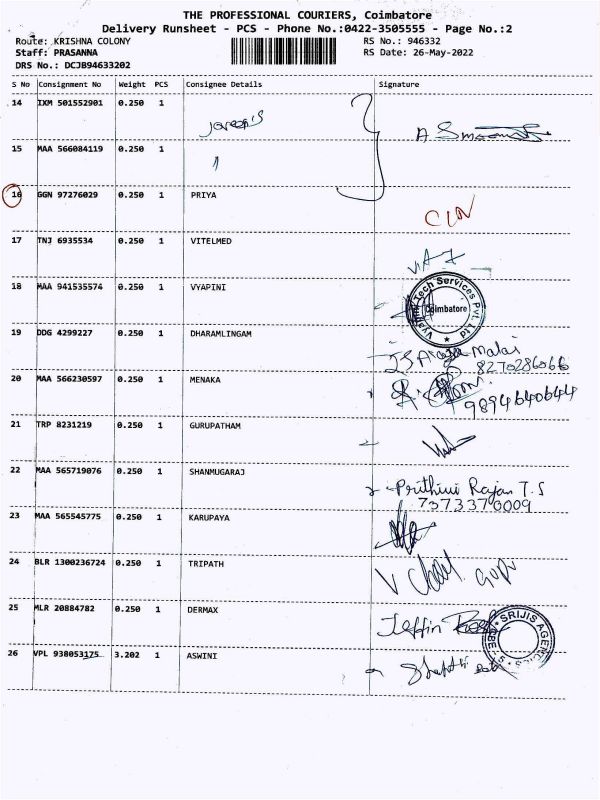 THE PROFESSIONAL COURIERS, Coimbatore
Delivery Runsheet - PCS - Phone No.:0422-3505555 - Page No.:2
Route: KRISHNA COLONY RS No.: 946332
Staff: PRASANNA RS Date: 26-May-2022
DRS No.: DCJB94633202
S No Consignment No Weight PCS Consignee Details Signature
14 IXM 501552901 0.250 1
15 MAA 566084119 0.250 1
16 GGN 97276029 0.250 1 PRIYA
17 TNJ 6935534 0.250 1 VITELMED
18 MAA 941535574 0.250 1 VYAPINI
Tech Services Pvt. Ltd
Coimbatore
19 DDG 4299227 0.250 1 DHARAMLINGAM
Malai
8270286066
20 MAA 566230597 0.250 1 MENAKA
9894640644
21 TRP 8231219 0.250 1 GURUPATHAM
22 MAA 565719076 0.250 1 SHANMUGARAJ
Prithivi Rajan T.S
7373370009
23 MAA 565545775 0.250 1 KARUPAYA
24 BLR 1300236724 0.250 1 TRIPATH
25 MLR 20884782 0.250 1 DERMAX
Jeffin
SRIJIS AGENCIES
26 VPL 938053175 3.202 1 ASWINI